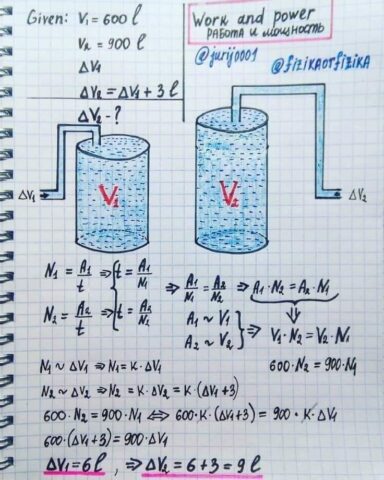 Given: V₁ = 600 l
V₂ = 900 l
ΔV₁
ΔV₂ = ΔV₁ + 3 l
ΔV₂ - ?
Work and power
РАБОТА И МОЩНОСТЬ
@jurij0001
@fizikaotfizika
ΔV₁
V₁
V₂
ΔV₂
N₁ = A₁/t ⇒ { t = A₁/N₁
N₂ = A₂/t ⇒ { t = A₂/N₂
⇒ A₁/N₁ = A₂/N₂ ⇒ A₁·N₂ = A₂·N₁
A₁ ~ V₁
A₂ ~ V₂ } ⇒ V₁·N₂ = V₂·N₁
600·N₂ = 900·N₁
N₁ ~ ΔV₁ ⇒ N₁ = K·ΔV₁
N₂ ~ ΔV₂ ⇒ N₂ = K·ΔV₂ = K·(ΔV₁+3)
600·N₂ = 900·N₁ ⇔ 600·K·(ΔV₁+3) = 900·K·ΔV₁
600·(ΔV₁+3) = 900·ΔV₁
ΔV₁ = 6 l, ⇒ ΔV₂ = 6+3 = 9 l